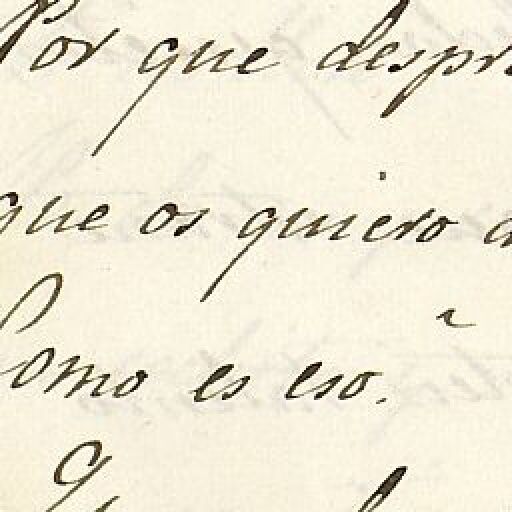 Por que despr
que os quiero a
Como es eso.